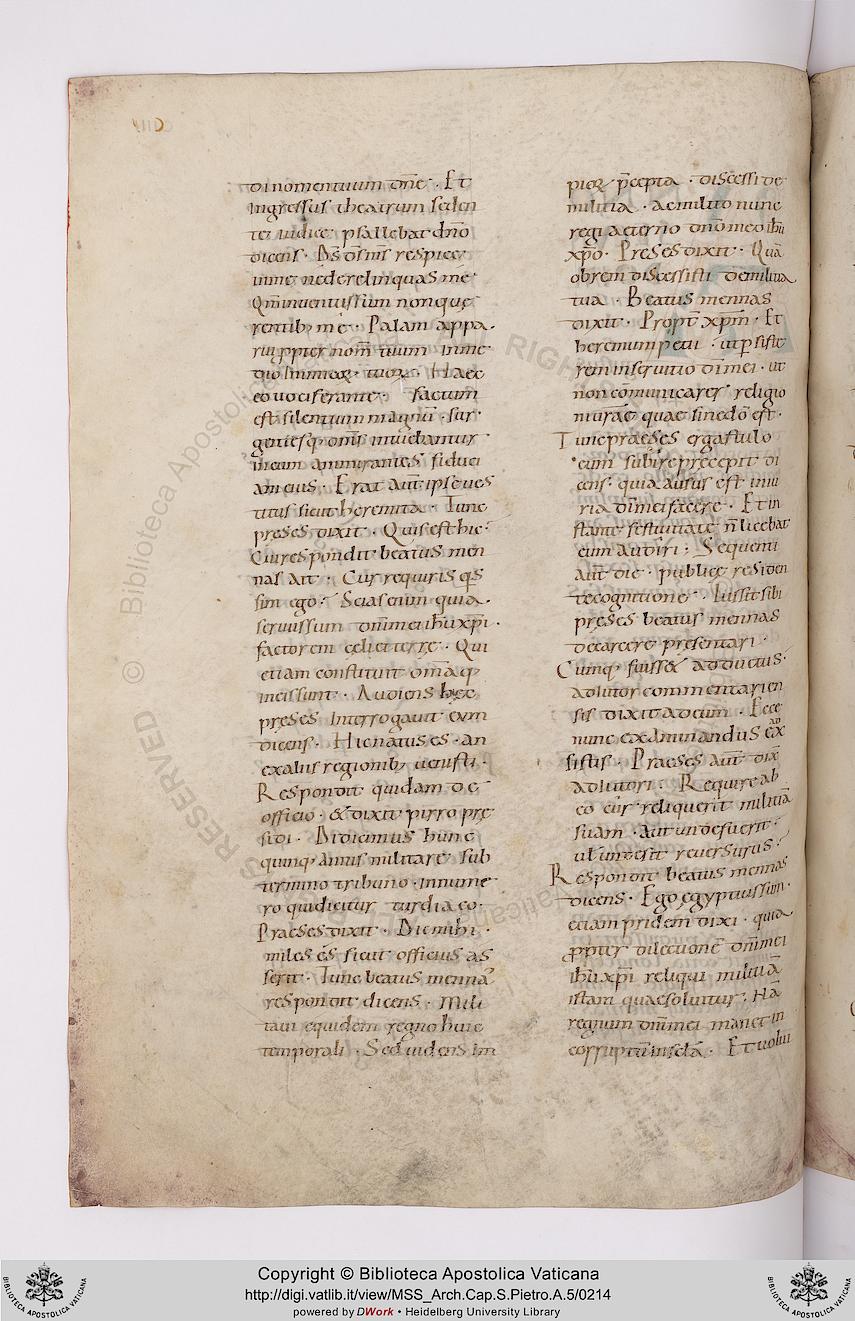 di nomen tuum dn̄e · Et
ingressus theatrum seden
te iudice psallebat dn̄o
dicens · Dś dś m̄s respice
in me ne derelinquas me ·
Qm̄ inuentus sum non quę
rentib; me · Palam appa
rui ꝓpter nom̄ tuum in me
dio inimicoꝝ tuoꝝ · Haec
eo uociferante · factum
est silentium magnū · sur
gentesq; om̄s intuebantur
uirum ammirantes fiduci
am eius · Erat aūt ipse ues
titus sicut heremita · Tunc
preses dixit · Quis est hic ·
Cui respondit beatus men
nas ait · Cur requiris q̄s
sim ego · Scias enim quia
seruus sum dn̄i mei ih̄u xp̄i ·
factorem cęli et terrę · Qui
etiam constituit om̄a q̄
in eis sunt · Audiens hęc
pręses interrogauit eum
dicens · Hic natus es · an
ex aliis regionib; uenisti ·
Respondit quidam de
officio · & dixit pirro prę
sidi · Didicimus hunc
quinq; annis militare sub
firmino tribuno · in nume
ro qui dicitur turdiaco ·
Praeses dixit · Dic mihi ·
miles es sicut officius as
serit · Tunc beatus menna
respondit dicens · Mili
taui equidem regno huic
temporali · Sed uidens im
pioꝝ p̄cepta · discessi de
militia · ac milito nunc
regi aeterno dn̄o meo ih̄u
xp̄o · Preses dixit · Quā
obrem discessisti de militia
tua · Beatus mennas
dixit · Propt̄ xp̄m · Et
heremum petii · ut ꝑsiste
rem in seruitio dn̄i mei · ut
non cōmunicarer religio
ni urāe quae sine dō est ·
Tunc praeses ergastulo
eum subire precepit di
cens · quia ausus est iniu
ria dn̄i mei facere · Et in
stante festiuitate n̄ licebat
eum audiri : Sequenti
aūt die · publice residen
te cognitione · Iussit sibi
pręses beatus mennas
de carcere pręsentari ·
Cumq; fuiss& adductus ·
adiutor commentarien
sis dixit ad eum · Ecce
nunc examinandus es
ad
sistis · Praeses aūt dix̄
adiutori · Require ab
eo cur reliquerit militiā
suam · aut unde fuerit ·
uł unde sit reuersurus ·
Respondit beatus mennas
dicens · Ego ęgyptius sum ·
etiam pridem dixi · quia
ꝓpter dilectionē dn̄i mei
ih̄u xp̄i reliqui militiā
istam quae soluitur · Nā
regnum dn̄i mei manet in
corruptū in sc̄la · Et uolui
Copyright © Biblioteca Apostolica Vaticana
http://digi.vatlib.it/view/MSS_Arch.Cap.S.Pietro.A.5/0214
powered by DWork • Heidelberg University Library